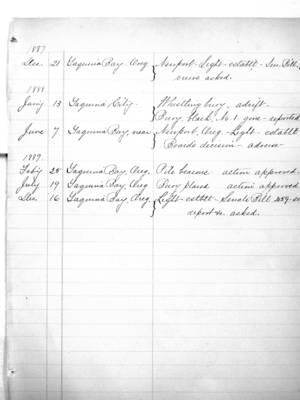 1887
Dec. 21 Yaquina Bay Oreg Newport - Light - estabtt - Sen. Bill,
views asked.
1888
Jan'y 13 Yaquina City. Whistling buoy, adrift.
Buoy black, No 1 gone - reported
June 7 Yaquina Bay, near Newport, Oreg. - Light - estabtt
Boards decision - adverse
1889.
Feb'y 28 Yaquina Bay, Oreg. beacons action approved.
July 19 Yaquina Bay, Oreg Buoy placed action approved
Dec. 16 Yaquina Bay, Oreg. Light - estbtt - Senate Bill
report &c. asked.